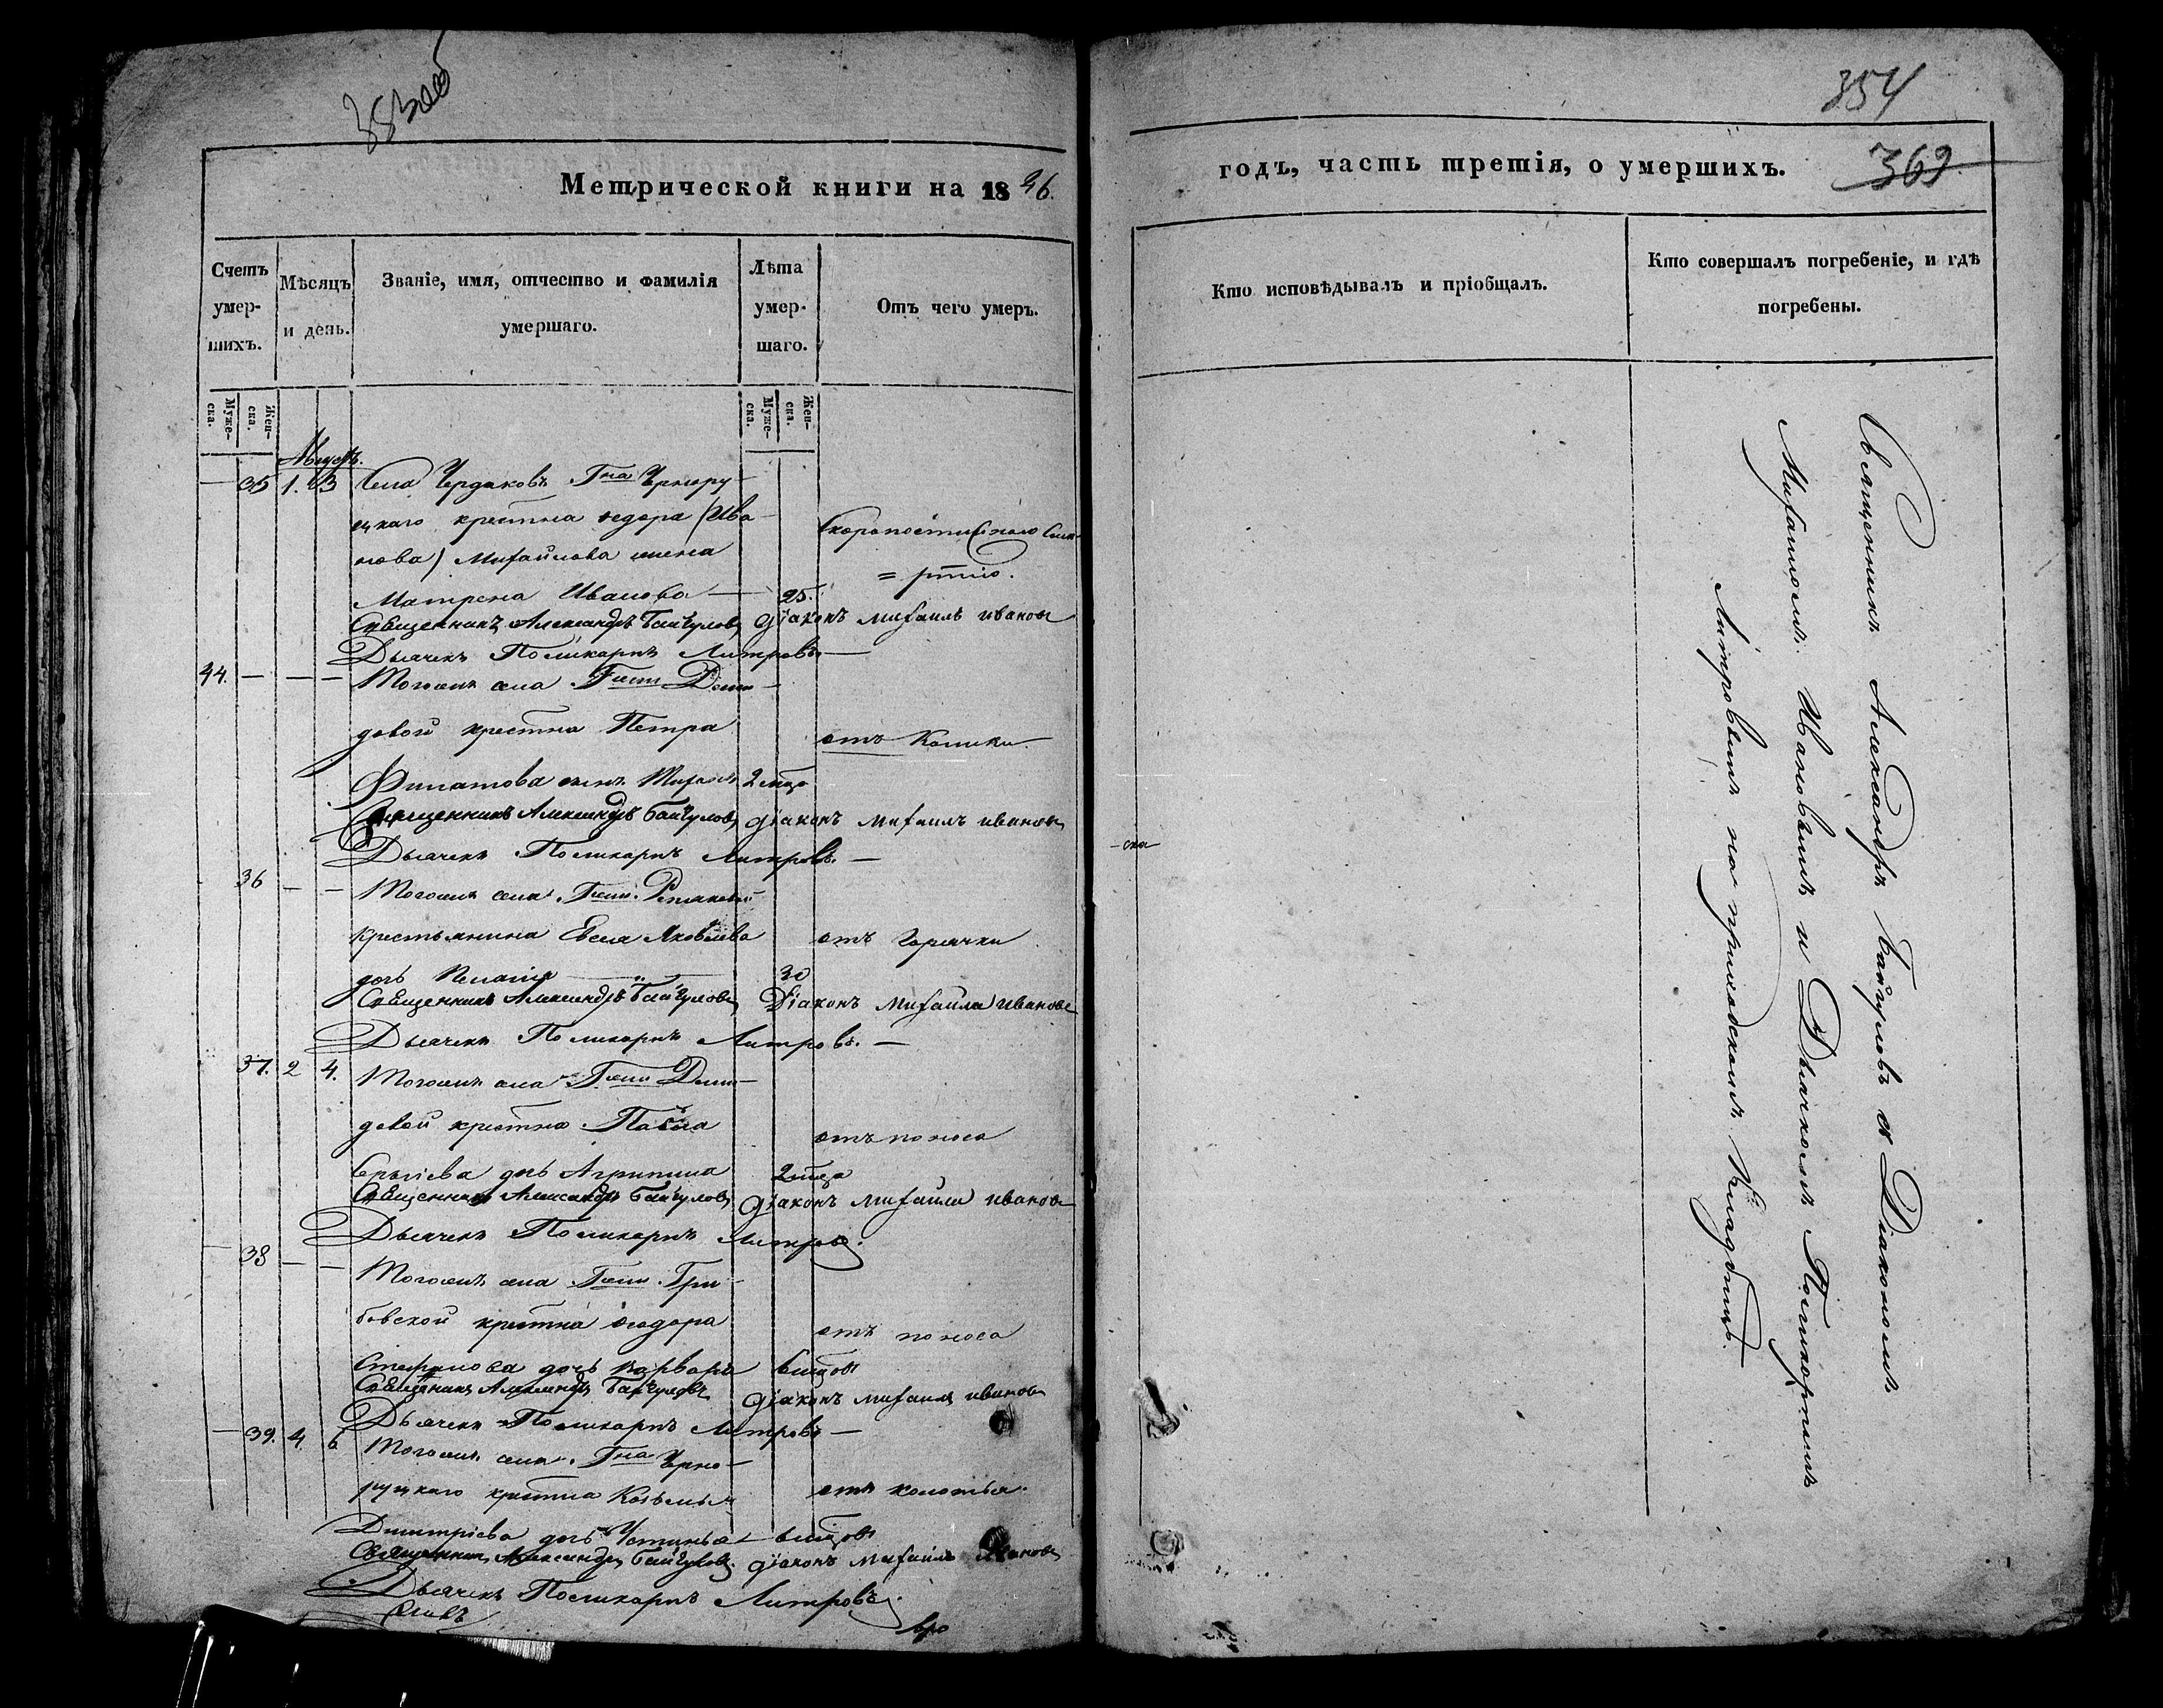 353 об
Метрической книги на 1846.
Счетъ умер-шихъ.
Мѣсяцъ и день.
Званіе, имя, отчество и фамилія умершаго.
Лѣта умер-шаго.
Отъ чего умеръ.
Муже-ска.
Жен-ска.
Муже-ска.
Жен-ска.
Августъ.
— 35 1. 3 Села Чердаковъ Гна Чернору-
цкаго крестна Ѳедора (Ива-
нова) Михайлова жена
Скоропостижною сме-
= ртію.
Матрена Иванова — 25.
Священникъ Александръ Байгуловъ Діаконъ Михаилъ Ивановъ
Дьячекъ Поликарпъ Литровъ —
44. — — — Тогожъ села Гжи Деми-
довой крестна Петра
отъ Колики.
Филатова сынъ 2 мца
Священникъ Александръ Байгуловъ Діаконъ Михаилъ Ивановъ
Дьячекъ Поликарпъ Литровъ. —
36 — — Тогожъ села Гжи
крестьянина Евсея Яковлева отъ Горячки
дочь Пелагія — 30
Священникъ Александръ Байгуловъ Діаконъ Михаилъ Ивановъ
Дьячекъ Поликарпъ Литровъ. —
37. 2 4. Тогожъ села Гжи Деми-
довой крестна Павла
отъ поноса
Сергіева дочь Агрипина 2 мца
Священникъ Александръ Байгуловъ Діаконъ Михаилъ Ивановъ
Дьячекъ Поликарпъ Литровъ.
— 38 — — Тогожъ села Гжи Гри-
бовской крестна Ѳеодора
отъ поноса
Стефанова дочь Варвара 6 мцовъ
Священникъ Александръ Байгуловъ Діаконъ Михаилъ Ивановъ
Дьячекъ Поликарпъ Литровъ —
— 39. 4. 6 Тогожъ села Гна Черно-
руцкаго крестна Козьмы
отъ колотья.
Димитріева дочь Устинья — 6 мцовъ
Священникъ Александръ Байгуловъ Діаконъ Михаилъ Ивановъ
Дьячекъ Поликарпъ Литровъ.
354
369
годъ, часть третія, о умершихъ.
Кто исповѣдывалъ и пріобщалъ.
Кто совершалъ погребеніе, и гдѣ погребены.
Священникъ Александръ Байгуловъ съ Діакономъ
Михаиломъ Ивановымъ и Дьячкомъ Поликарпомъ
Литровымъ на приходскомъ Кладбищѣ.
—ска